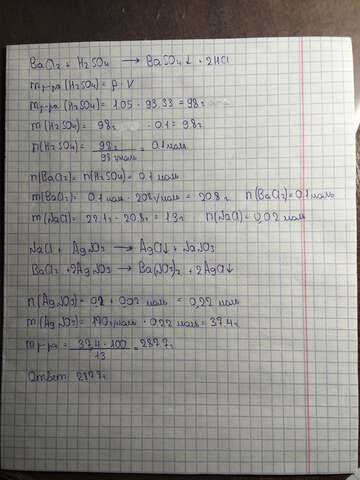 BaCl₂ + H₂SO₄ → BaSO₄↓ + 2HCl
mр-ра (H₂SO₄) = ρ · V
mр-ра (H₂SO₄) = 1.05 · 93,33 = 98г
m(H₂SO₄) = 98г · 0.1 = 9.8г
n(H₂SO₄) = 9.8г / 98 г/моль = 0.1 моль
n(BaCl₂) = n(H₂SO₄) = 0.1 моль
m(BaCl₂) = 0.1 моль · 208 г/моль = 20.8 г. n(BaCl₂) = 0.1 моль
m(NaCl) = 22.1г - 20.8г = 1.3г n(NaCl) = 0,02 моль
NaCl + AgNO₃ → AgCl↓ + NaNO₃
BaCl₂ + 2AgNO₃ → Ba(NO₃)₂ + 2AgCl↓
n(AgNO₃) = 0.2 + 0,02 моль = 0,22 моль
m(AgNO₃) = 170 г/моль · 0.22 моль = 37.4г
mр-ра = 37,4 · 100 / 13 = 287,7г
Ответ: 287,7г